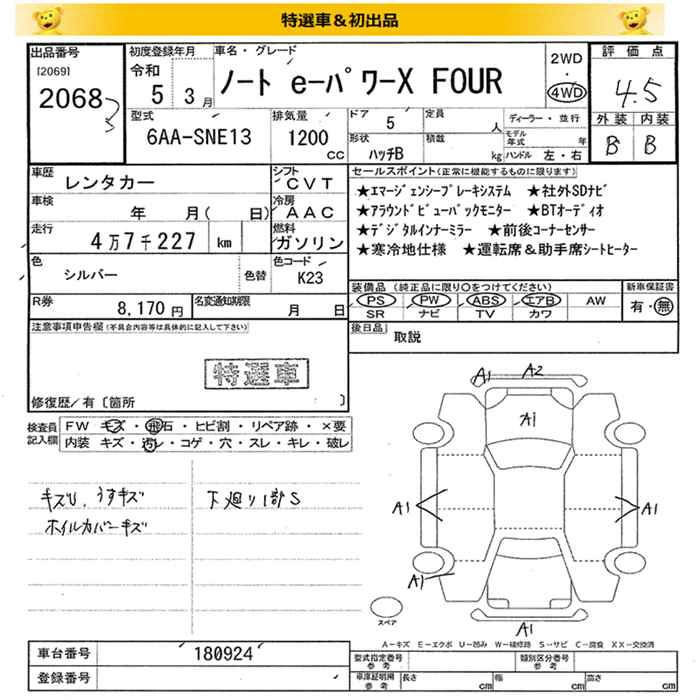 特選車＆初出品
出品番号
[2069]
2068
初度登録年月
令和
5 3月
車名・グレード
ノート eーパワーX FOUR
2WD
・
4WD
評価点
4.5
外装 内装
B B
型式
6AA-SNE13
排気量
1200
CC
ドア
5
定員
人
ディーラー・並行
形状
ハッチB
積載
kg
モデル年式
年
ハンドル 左・右
車歴
レンタカー
シフト
CVT
車検
年 月( 日)
冷房
AAC
走行
4万7千227 km
燃料
ガソリン
色
シルバー
色替
色コード
K23
R券
8,170円
名変通知期限
月 日
セールスポイント(正常に機能するものに限ります)
★エマージェンシーブレーキシステム ★社外SDナビ
★アラウンドビュー・バックモニター ★BTオーディオ
★デジタルインナーミラー ★前後コーナーセンサー
★寒冷地仕様 ★運転席＆助手席シートヒーター
装備品 (純正品に限り○をつけてください)
PS PW ABS エアB AW
SR ナビ TV カワ
新車保証書
有・無
後日品
取説
注意事項申告欄(不具合内容等は具体的に記入して下さい)
特選車
修復歴/有〔箇所 〕
検査員
記入欄
FW キズ・飛石・ヒビ割・リペア跡・×要
内装 キズ・汚レ・コゲ・穴・スレ・キレ・破レ
キズU、うすキズ
ホイルカバーキズ
下廻り1部S
A1 A2
A1
A1
A1
A1
A1
スペア
A―キズ E―エクボ U―凹み W―補修跡 S―サビ C―腐食 XX―交換済
車台番号
180924
登録番号
型式指定番号
参考
類別区分番号
参考
車庫証明用
参考
長さ cm
幅 cm
高さ cm